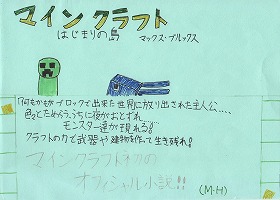 マインクラフト
はじまりの島
マックス・ブルックス
「何もかもブロックで出来た世界に放り出された主人公....
色々とためらううちに夜がおとずれ
モンスター達が現れる!!
クラフトの力で武器や建物を作って生き残れ!
マインクラフト初の
オフィシャル小説!!
(M・H)